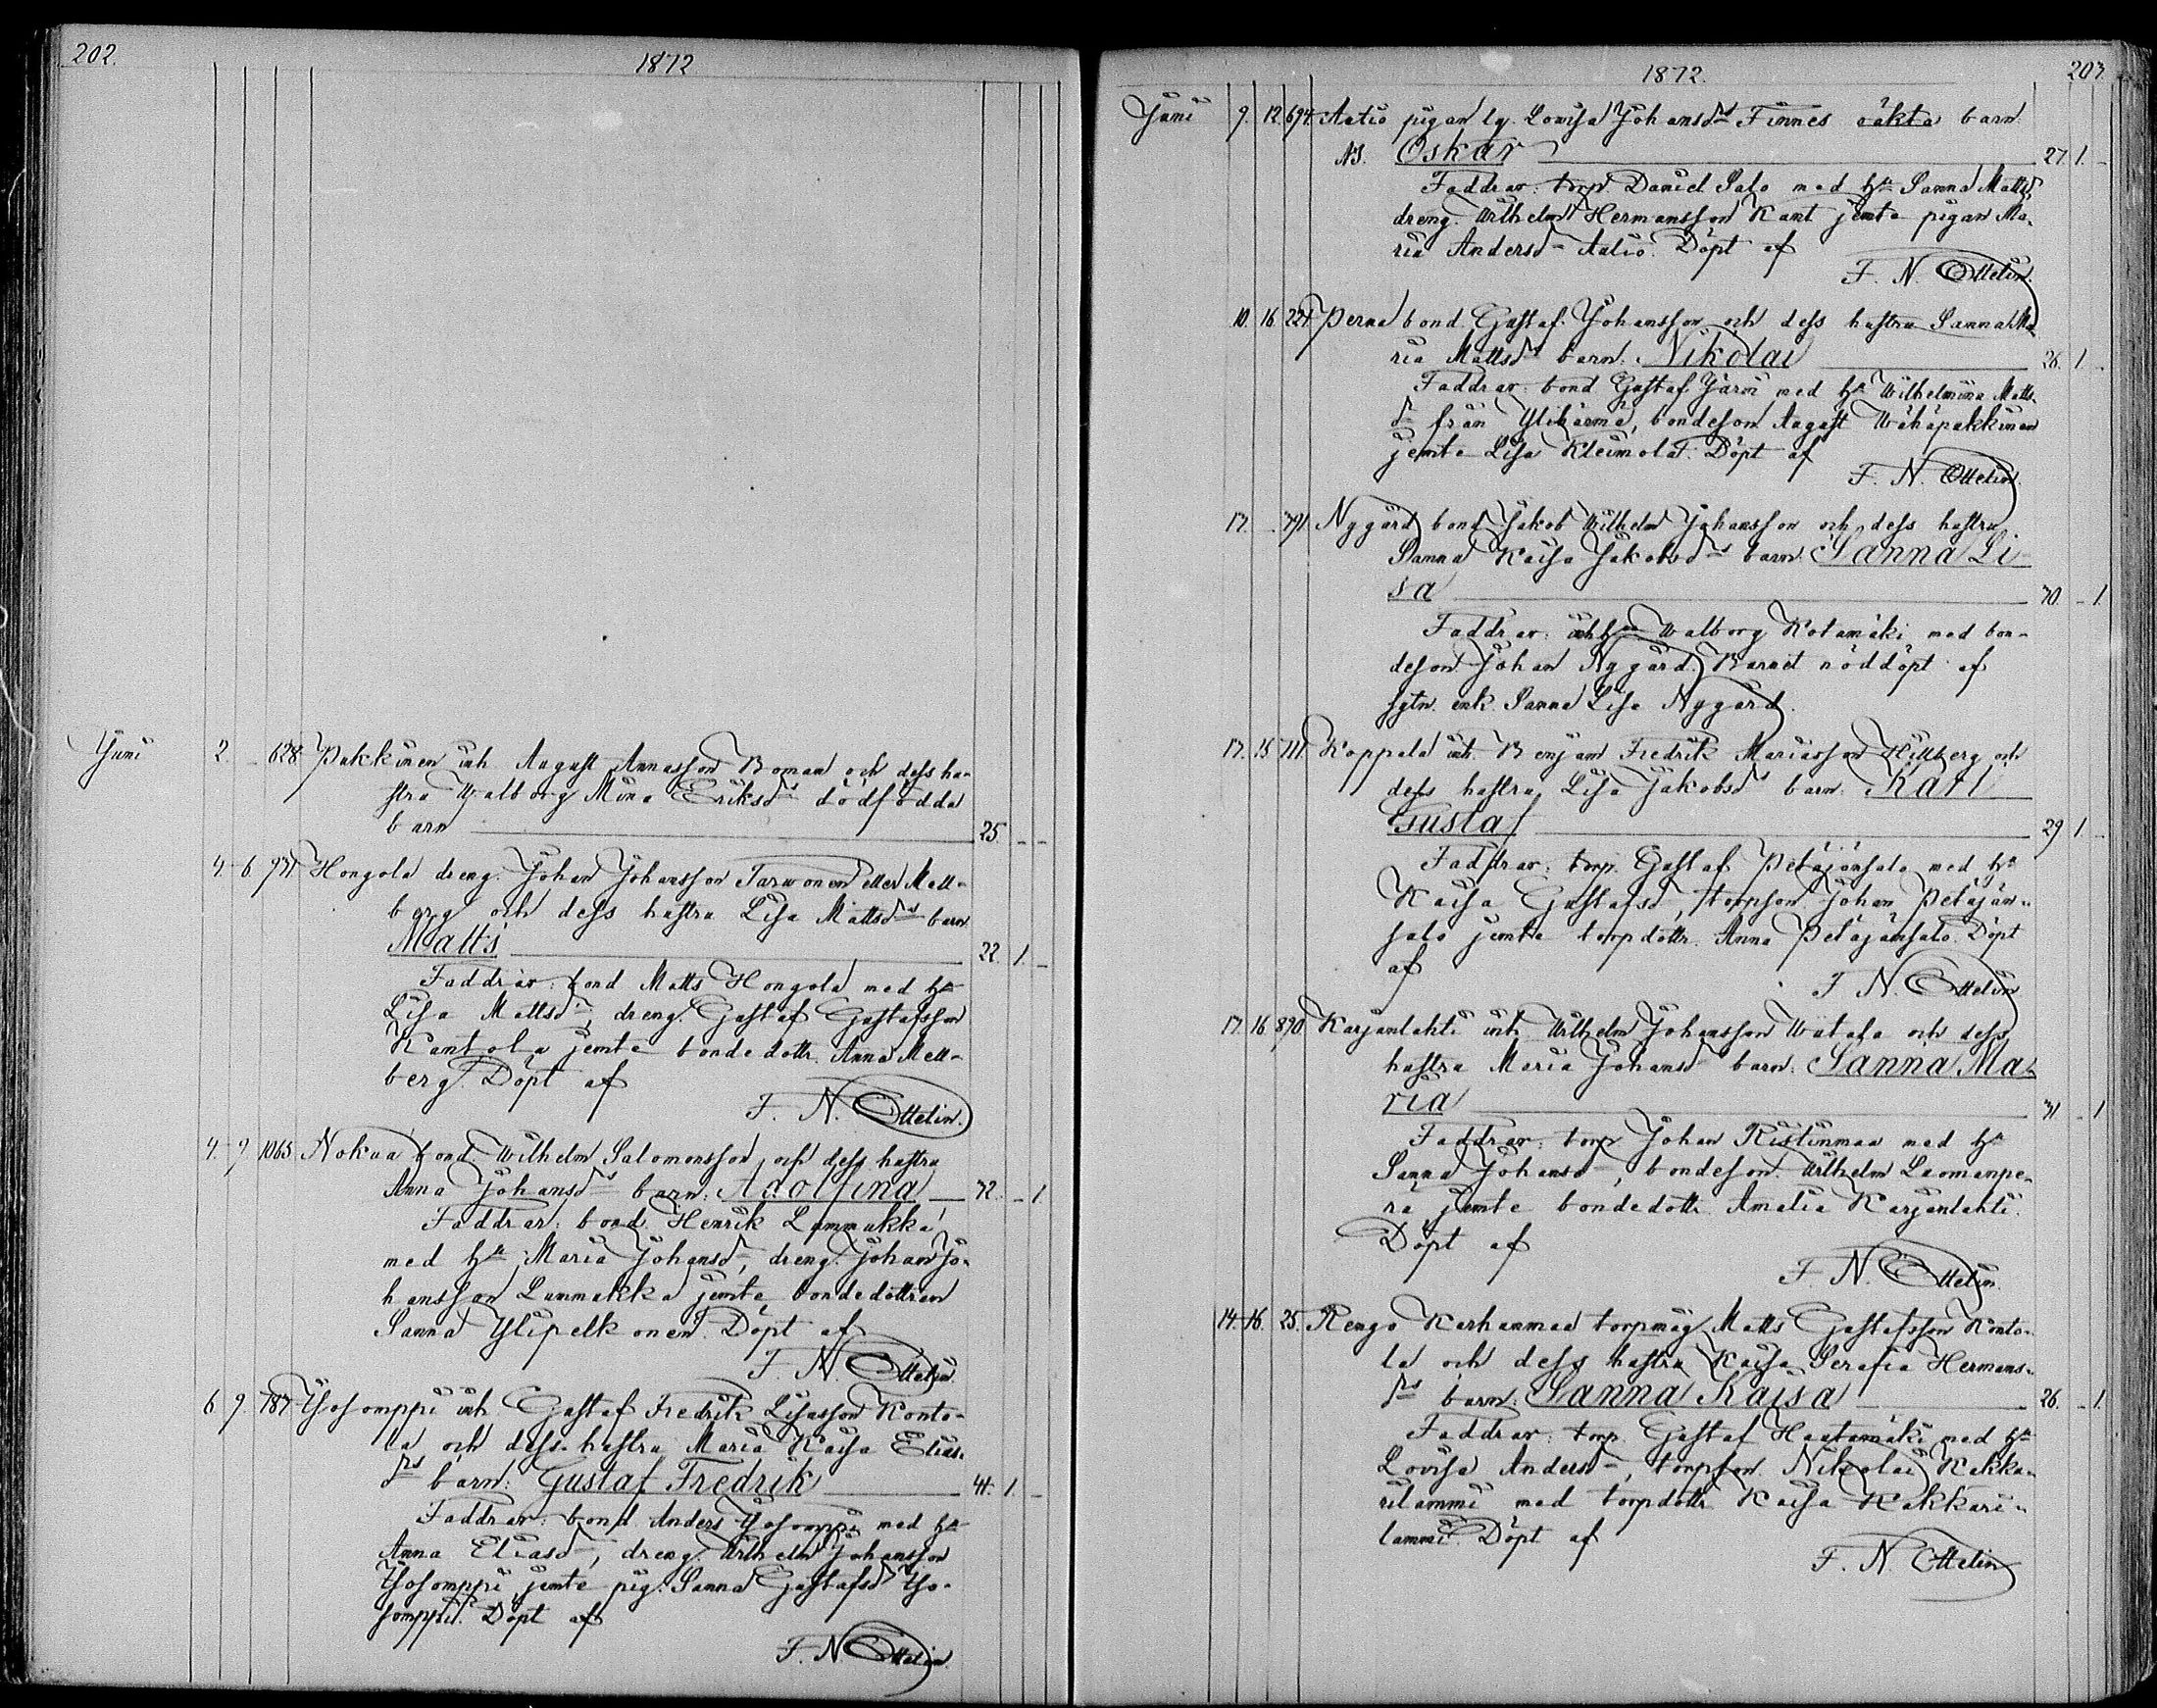 202.
1872
Juni 2. 628. Pakkinen inh August Annasson Roman och dess hu-
stru Walborg Mina Eriksd:rs dödfödda
barn 25. - -
4. 6. 931. Hongola dreng. Johan Johansson Tarwonen eller Mell-
berg och dess hustru Lisa Mattsd:rs barn
Matts 22. 1. -
Faddrar: bond Matts Hongola med h:u
Lisa Mattsd:r, dreng. Gustaf Gustafsson
Kantola jemte bondedottr. Anna Mell-
berg. Döpt af
F. N. Ottelin.
4. 9. 1065. Nokua bond. Wilhelm Salomonsson och dess hustru
Anna Johansd:rs barn: Adolfina 32. - 1.
Faddrar: bond. Henrik Lammukka
med h:u Maria Johansd:r, dreng. Johan Jo-
hansson Lummukka jemte bondedottren
Sanna Ylipelkonen. Döpt af
F. N. Ottelin.
6. 9. 787. Isosomppi inh Gustaf Fredrik Lisasson Konto-
la och dess hustru Maria Kaisa Elias-
d:rs barn: Gustaf Fredrik 41. 1. -
Faddrar: bond. Anders Isosomppi med h:u
Anna Eliasd:r, dreng. Wilhelm Johansson
Isosomppi jemte pig. Sanna Gustafsd. Iso-
somppi. Döpt af
F. N. Ottelin.
1872.
203.
Juni 9. 12. 694. Aatio pigan lg. Lowisa Johansd:rs Finnes oäkta barn
NB. Oskar 27. 1. -
Faddrar: torp. Daniel Salo med h:u Sanna Mattsd:r
dreng. Wilhelm Hermansson Kant jemte pigan Ma-
ria Andersd:r Aatio. Döpt af
F. N. Ottelin.
10. 16. 221. Perna bond. Gustaf Johansson och dess hustru Sanna Ma-
ria Mattsd:rs barn: Nikolai 26. 1. -
Faddrar: bond Gustaf Järvi med h:u Wilhelmina Matts-
d:r från Ylihärmä, bondeson August Wähäpakkinen
jemte Lisa Kleimola. Döpt af
F. N. Ottelin.
12. - 391. Nygård bond Jakob Wilhelm Johansson och dess hustru
Sanna Kaisa Jakobsd:rs barn: Sanna Li-
sa 30. - 1.
Faddrar: Walborg Kotamäki med bon-
deson Johan Nygård. Barnet nöddöpt af
sytn. enk. Sanna Lisa Nygård.
12. 15. 711. Koppala inh. Benjam Fredrik Mariasson Hillberg och
dess hustru Lisa Jakobsd:rs barn: Karl
Gustaf 29. 1. -
Faddrar: torp. Gustaf Petäjänsalo med h:u
Kaisa Gustafsd:r, torpson Johan Petäjän-
salo jemte torpdottr. Anna Petäjänsalo. Döpt
af
F. N. Ottelin
12. 16. 890. Karjanlahti inh Wilhelm Johansson Watala och dess
hustru Maria Johansd:rs barn: Sanna Ma-
ria 31 - 1
Faddrar: torp Johan Ristinmaa med h:u
Sanna Johansd:r, bondeson Wilhelm Luomanpe-
rä jemte bondedottr. Amalia Karjanlahti.
Döpt af
F. N. Ottelin.
14. 16. 25. Rengo Karhunmaa torpmåg Matts Gustafsson Konto-
la och dess hustru Kaisa Serafia Hermans-
d:rs barn: Sanna Kaisa 26. - 1.
Faddrar: torp. Gustaf Haatamäki med h:u
Lovisa Andersd:r, torpson Nikolai Kakka-
rilammi med torpdottr. Kaisa Kakkari-
lammi. Döpt af
F. N. Ottelin